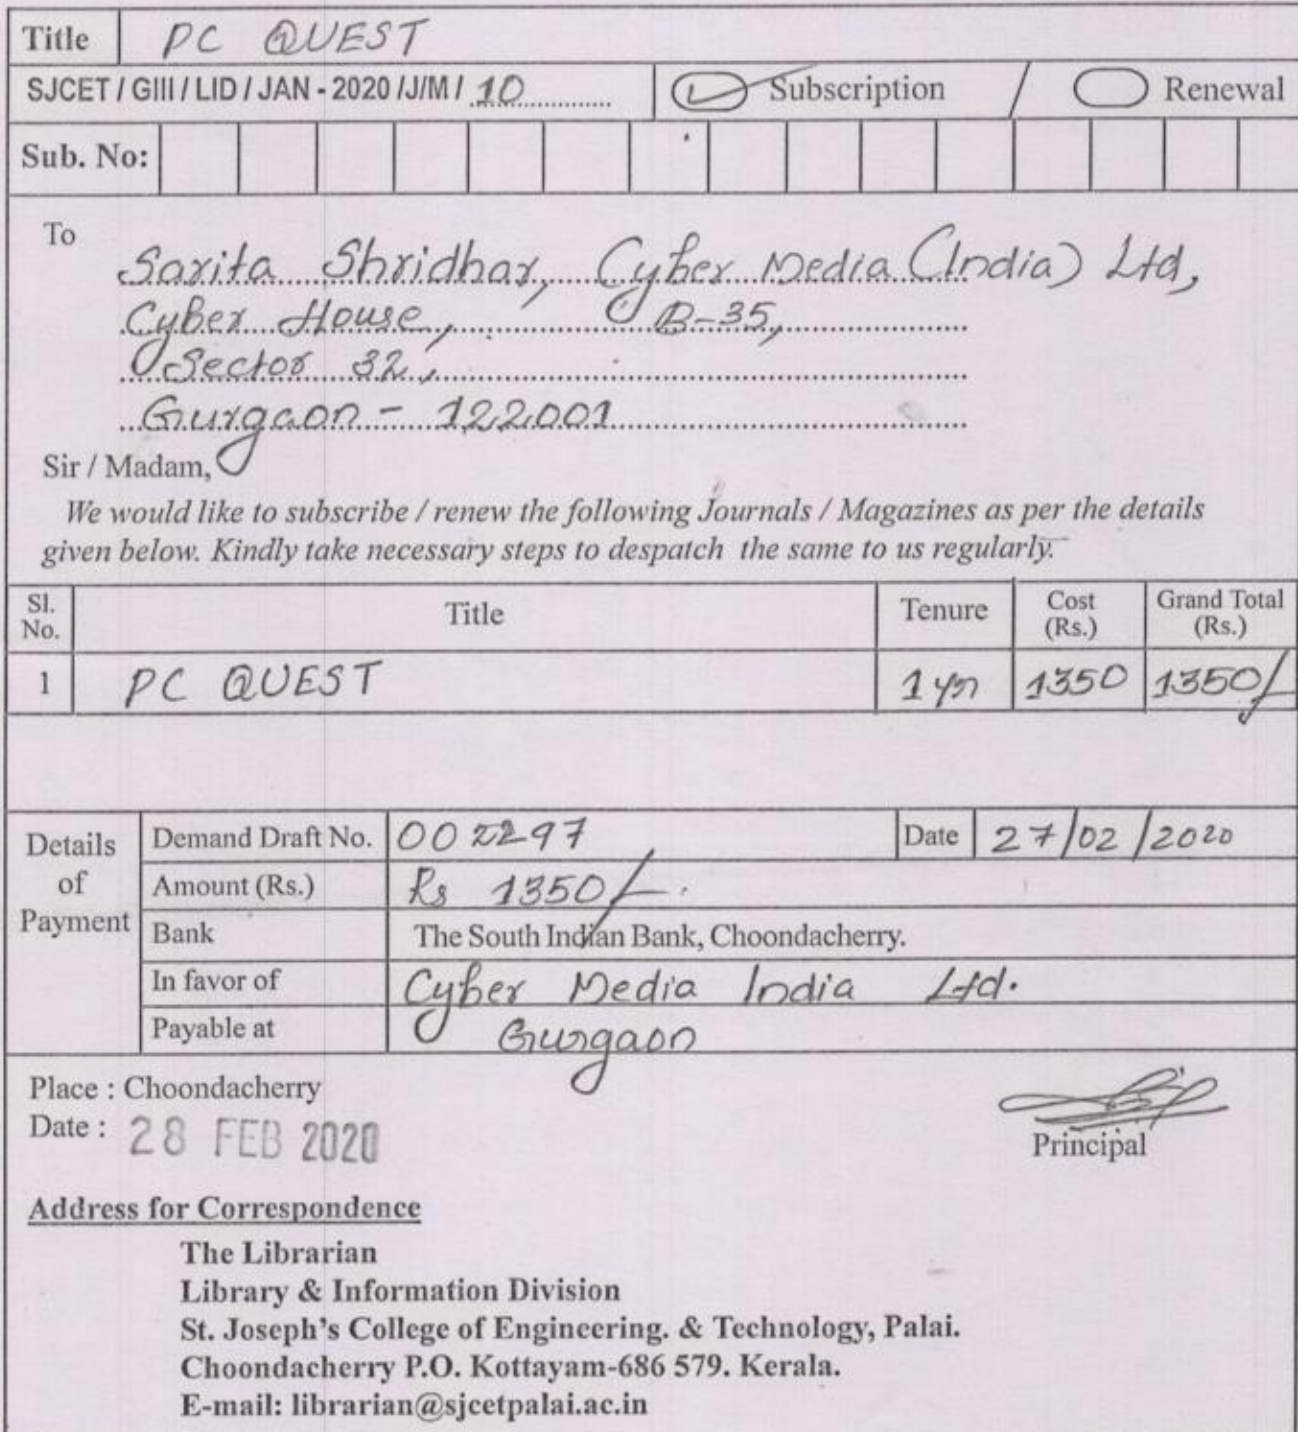 Title PC QUEST
SJCET / GIII / LID / JAN - 2020 /J/M / 10 Subscription / Renewal
Sub. No:
To
Sarita Shridhar, Cyber Media (India) Ltd,
Cyber House, B-35,
Sector 32,
Gurgaon - 122001
Sir / Madam,
We would like to subscribe / renew the following Journals / Magazines as per the details
given below. Kindly take necessary steps to despatch the same to us regularly.
Sl. No. Title Tenure Cost (Rs.) Grand Total (Rs.)
1 PC QUEST 1 yr 1350 1350/-
Details of Payment
Demand Draft No. 002297 Date 27/02/2020
Amount (Rs.) Rs 1350/-
Bank The South Indian Bank, Choondacherry.
In favor of Cyber Media India Ltd.
Payable at Gurgaon
Place : Choondacherry
Date : 28 FEB 2020
Principal
Address for Correspondence
The Librarian
Library & Information Division
St. Joseph's College of Engineering. & Technology, Palai.
Choondacherry P.O. Kottayam-686 579. Kerala.
E-mail: librarian@sjcetpalai.ac.in